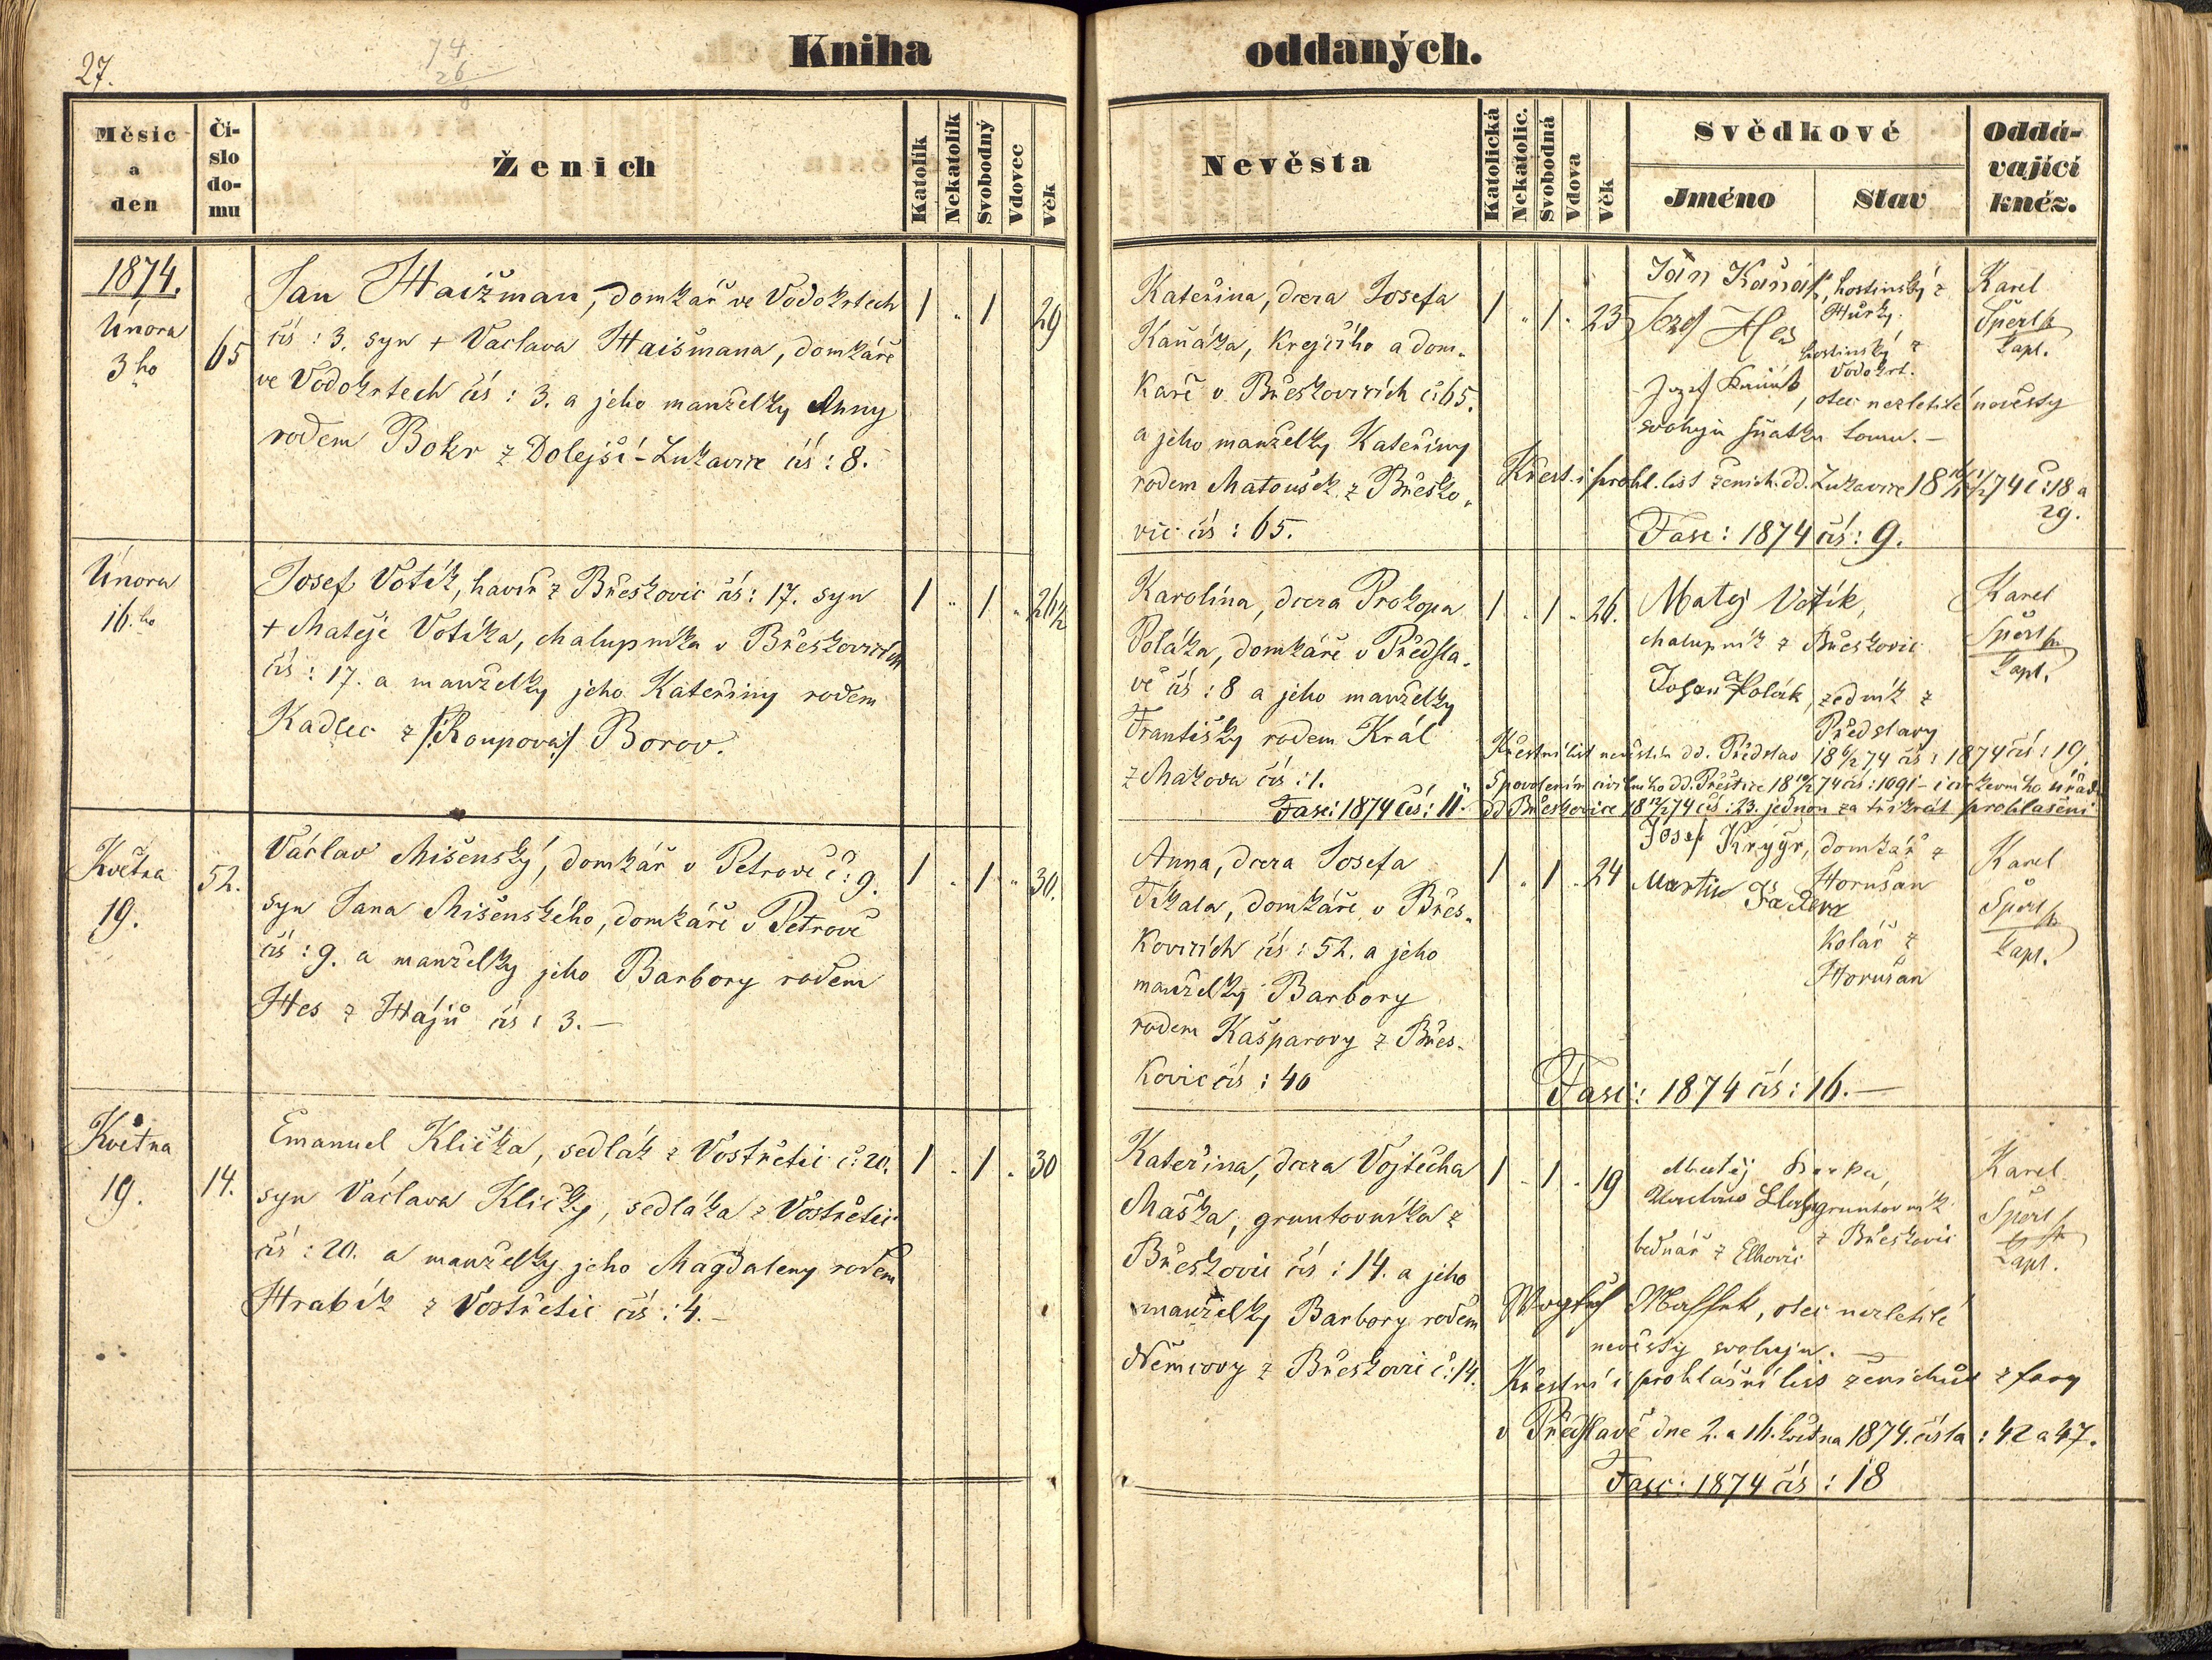 27.
74
26
8
Kniha oddaných.
Měsíc a den
Číslo domu
Ženich
Katolík
Nekatolík
Svobodný
Vdovec
Věk
Nevěsta
Katolická
Nekatolic.
Svobodná
Vdova
Věk
Svědkové
Jméno
Stav
Oddávající kněz.
1874.
Února
3ho
65
Jan Haižman, domkář ve Vodokrtech
čís: 3. syn + Vaclava Haišmana, domkáře
ve Vodokrtech čís: 3. a jeho manželky Anny
rodem Bokr z Dolejší-Lukavice čís: 8.
1 " 1 29
Kateřina, dcera Josefa
Kaňáka, krejčího a dom-
káře v Březkovicích č: 65.
a jeho manželky Kateřiny
rodem Matoušek z Břesko-
vic čís: 65.
1 " 1 " 23
Ján Kaňák, hostinský z
Hůrky.
Jozef Hes
hostinský z
Vodokrt.
Jozef Kaňák, otec nezletilé nevěsty
svoluju sňatku tomu. —
Křest. i prohl. list ženich. dd. Lukavice 18 74 č: 18 a
29.
Fasc: 1874 čís: 9.
Karel
Šperl
kapl.
Února
16ho
Josef Votík, havíř z Břeskovic čís: 17. syn
+ Matěje Votíka, chalupníka v Břeskovicích
čís: 17. a manželky jeho Kateřiny rodem
Kadlec z /:Roupova:/ Borov.
1 " 1 " 26½
Karolína, dcera Prokopa
Poláka, domkáře v Předsla-
vě čís: 8 a jeho manželky
Františky rodem Král
z Makova čís: 1.
Fasc: 1874 čís: 11.
1 " 1 " 26.
Matej Votík,
chalupník z Břeskovic
Johan Polák, zedník z
Předslavy
Křestní list nevěstin dd. Předslav 18 6/2 74 čís: 1874 čís: 19.
S povolením civilního dd. Přeštice 18 10/2 74 čís: 1091 – i církevního úřadu
dd Břeskovice 18 12/2 74 čís: 23. jednou za třikrát prohlášeni
Karel
Šperl
kapl.
Května
19.
52.
Václav Mišenský, domkář v Petrovč č: 9.
syn Jana Mišenského, domkáře v Petrovč
čís: 9. a manželky jeho Barbory rodem
Hes z Hájů čís: 3. —
1 " 1 " 30.
Anna, dcera Josefa
Tikala, domkáře v Břes-
kovicích čís: 52. a jeho
manželky Barbory
rodem Kašparovy z Břes-
kovic čís: 40
1 " 1 " 24
Josef Krýgr, domkář z
Horušan
Martin
Kolář z
Horušan
Fasc: 1874 čís: 16. —
Karel
Šperl
kapl.
Května
19.
14.
Emanuel Klička, sedlák z Vostřetic č: 20.
syn Václava Kličky, sedláka z Vostřetic
čís: 20. a manželky jeho Magdaleny rodem
Hrabík z Vostřetic čís: 4. —
1 " 1 " 30
Kateřina, dcera Vojtěcha
Maška, gruntovníka z
Břeskovic čís: 14. a jeho
manželky Barbory rodem
Němcovy z Břeskovic č: 14.
1 " 1 " 19
Matěj
gruntovník
z Břeskovic
bednář z Elhovic
Mašek, otec nezletilé
nevěsty svoluju. —
Křestní i prohlášní list ženichův z fary
v Předslavě dne 2. a 16. května 1874. čísla: 42 a 47.
Fasc: 1874 čís: 18
Karel
Šperl
kapl.